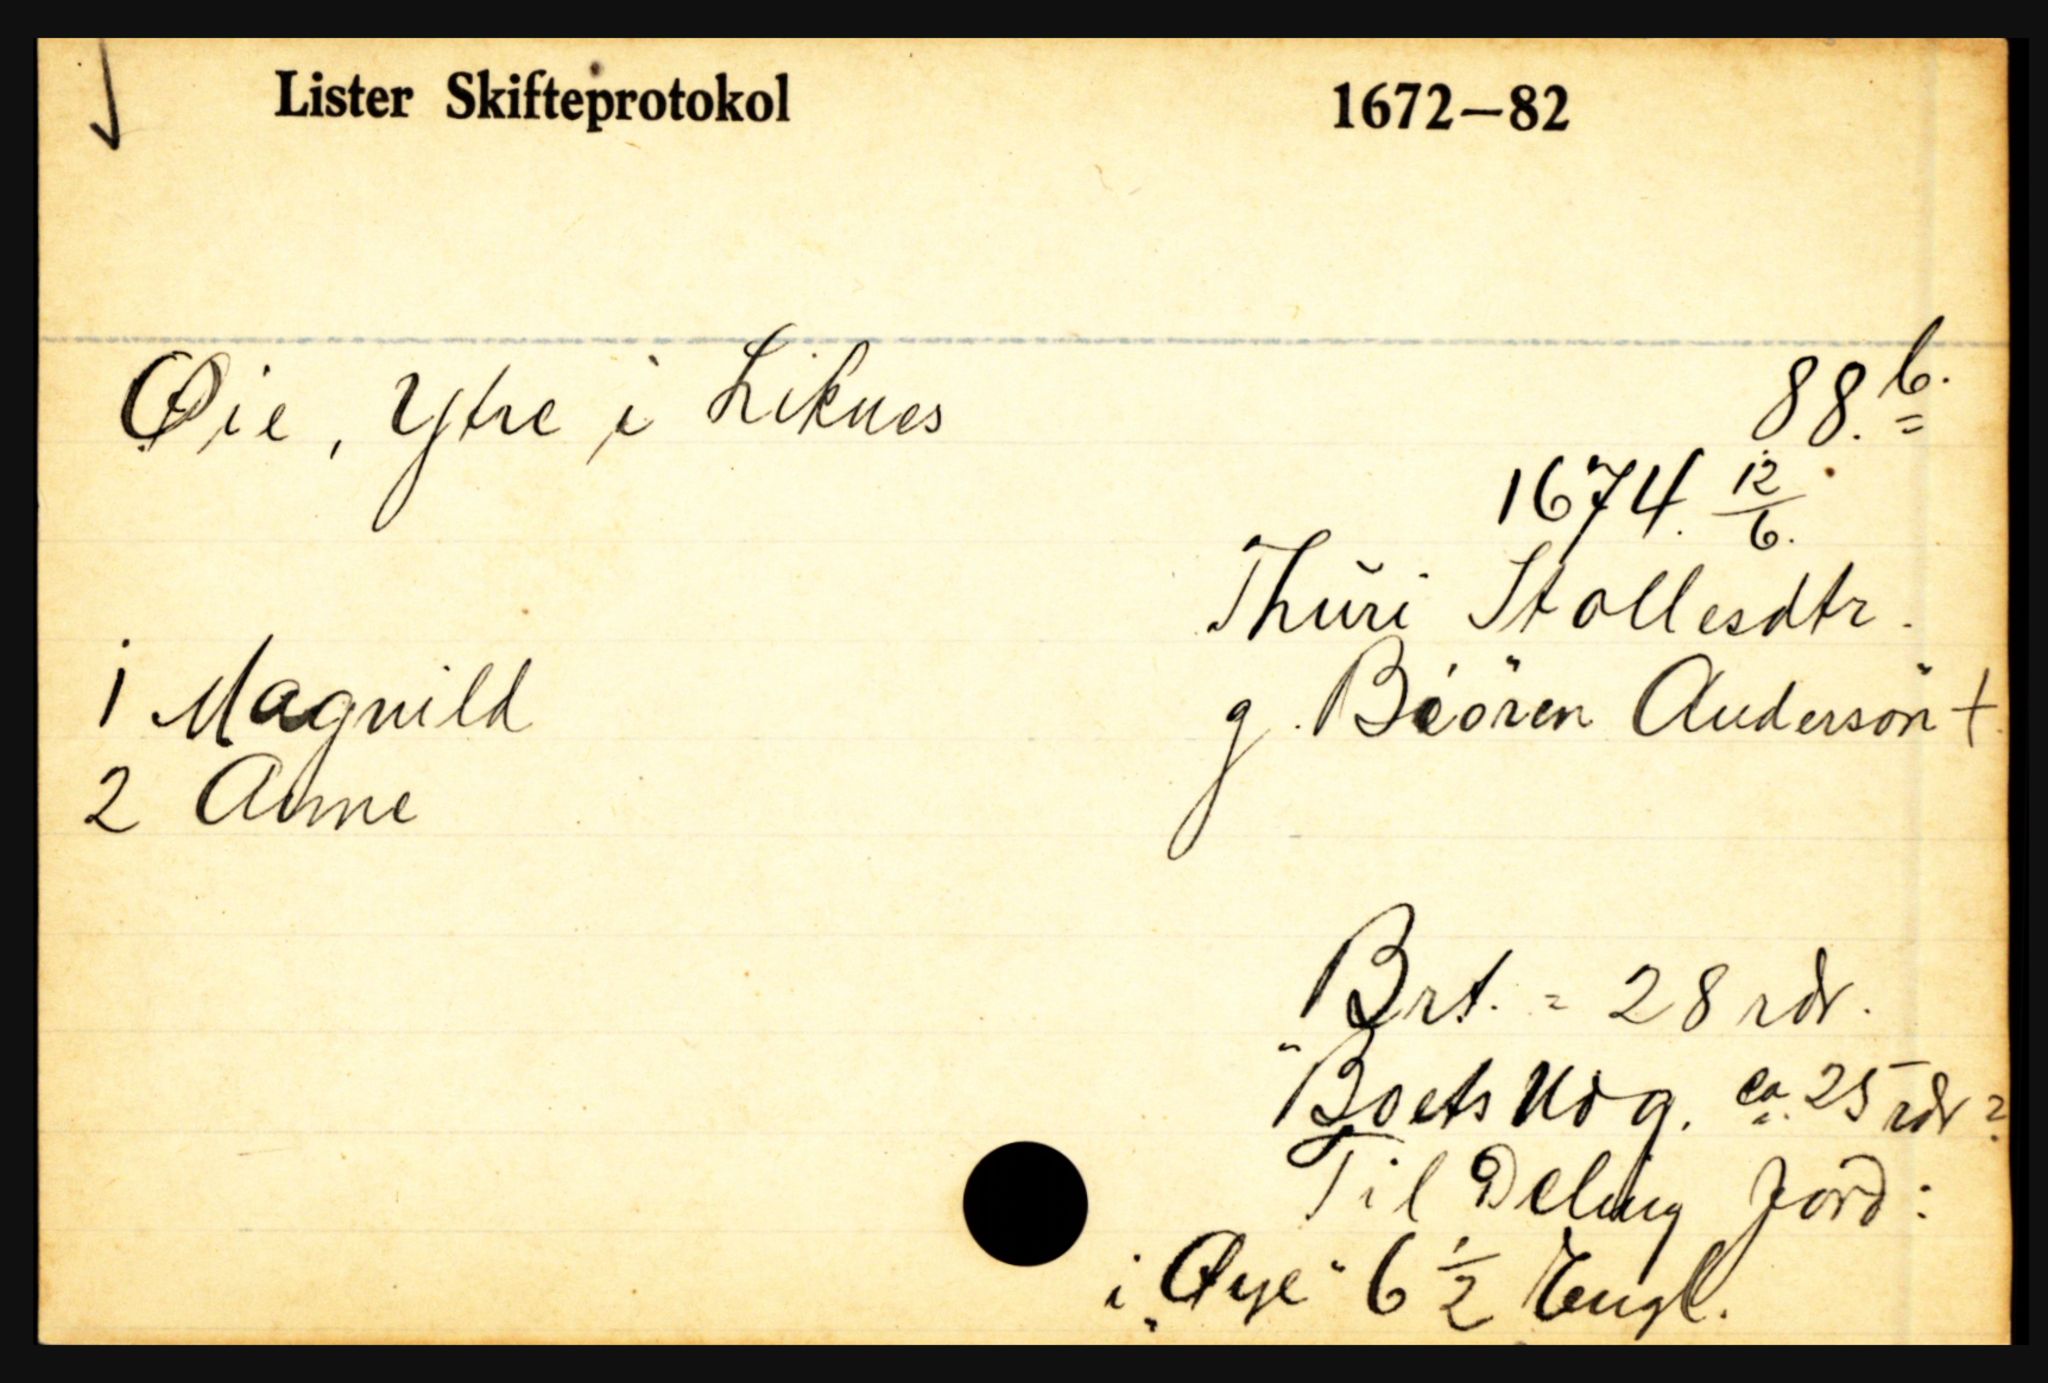 Lister Skifteprotokol 1672–82
Øie, Ytre i Liknes 88.b.
1674. 12/6.
Thŭri Stollesdtr.
1 Magnild g. Biören Anderson +.
2 Anne
Brt. = 28 rdr.
Boets Udg. ca. 25 rdr?
Til Deling Jord:
i "Øye" 6 1/2 Engl.